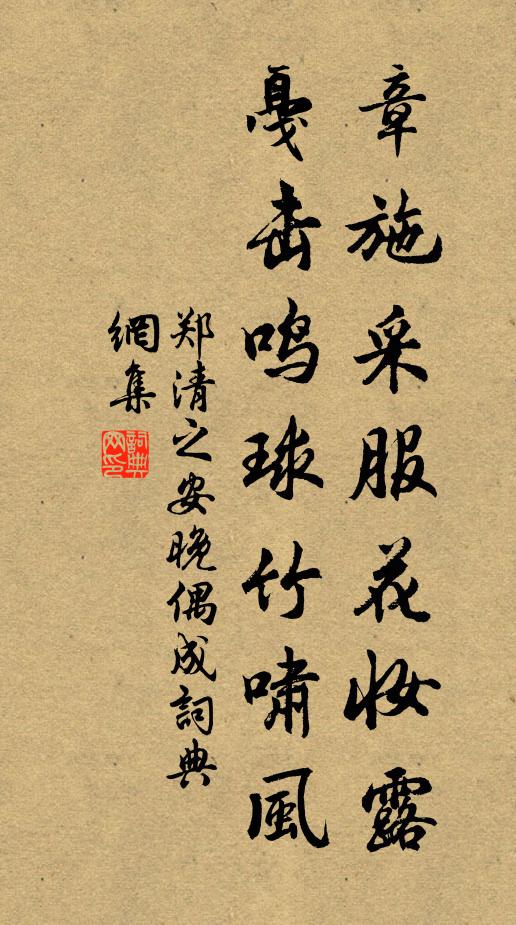 章施采服花妆露
戛击鸣球竹啸風
郑清之安晚偶成詞典
網集
詞典
网印